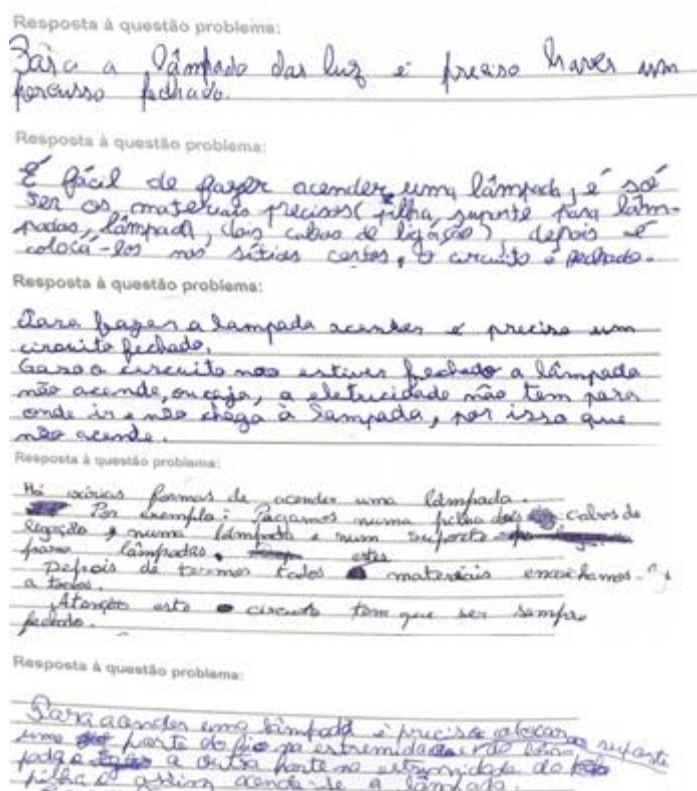 Resposta à questão problema:
Para a lâmpada dar luz é preciso haver um
percusso fechado.
Resposta à questão problema:
É fácil de fazer acender uma lâmpada, é só
ter os materiais precisos (pilha, suporte para lâm-
padas, lâmpada, dois cabos de ligação), depois é
colocá-los nos sítios certos, o circuito é fechado.
Resposta à questão problema:
Para fazer a lampada acender é preciso um
circuito fechado.
Caso o circuito nao estiver fechado a lâmpada
não acende, ou seja, a eletricidade não tem para
onde ir e não chega à lampada, por isso que
não acende.
Resposta à questão problema:
Há várias formas de acender uma lâmpada.
Por exemplo: Pegamos numa pilha dois cabos de
ligação, numa lâmpada e num suporte
para lâmpadas.
Depois de termos todos materiais encaixamos-
a todos.
Atenção este circuito tem que ser sempre
fechado.
Resposta à questão problema:
Para acender uma lâmpada é preciso colocar suporte
uma parte do fio na estremidade do
a outra parte na estremidade da
pilha e assim acende-se a lâmpada.